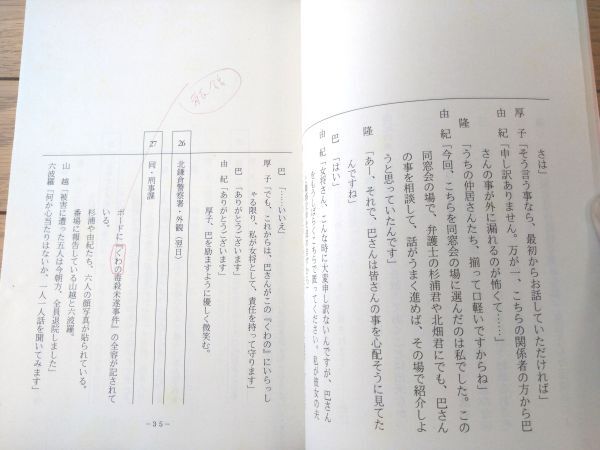 さは」
厚子「そう言う事なら、最初からお話していただければ」
由紀「申し訳ありません。万が一、こちらの関係者の方から巴
さんの事が外に漏れるのが怖くて……」
隆「うちの仲居さんたち、揃って口軽いですからね」
由紀「今回、こちらを同窓会の場に選んだのは私でした。この
同窓会の場で、弁護士の杉浦君や北畑君にでも、巴さん
の事を相談して、話がうまく進めば、その場で紹介しよ
うと思っていたんです」
隆「あー、それで、巴さんは皆さんの事を心配そうに見てた
んですね」
巴「はい」
由紀「女将さん、こんな時に大変申し訳ないんですが、巴さん
をもうしばらくこちらで置ってください。私が彼女の夫
巴「……いいえ」
厚子「でも、これからは、巴さんがこの『くわの』にいらっし
ゃる限り、私が女将として、責任を持って守ります」
巴「ありがとうございます」
由紀「ありがとうございます」
厚子、巴を励ますように優しく微笑む。
26 北鎌倉警察署・外観（翌日）
27 同・刑事課
ボードに『くわの毒殺未遂事件』の全容が記されて
いる。
杉浦や由紀たち、六人の顔写真が貼られている。
番場に報告している山越と六波羅。
山越「被害に遭った五人は今朝方、全員退院しました」
六波羅「何か心当たりはないか、一人一人話を聞いてみます」
－35－